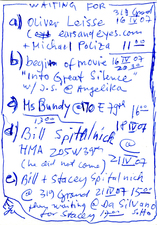 WAITING FOR
a) Oliver Leisse 313 Grand
16 IV 07
(eye earsandeyes.com
+ Michael Poliza 11 00
b) begin of movie 16 IV 07
20 00
"Into Great Silence"
w/ J.S. @ Angelika
c) Ms Bundy @ 170 E 79th 16 00
d) 13 00 18 IV 07
Bill Spitalnick @
HMA 205 W 39th
(he did not come) 21 IV 07
e) Bill + Stacey Spitalnick
@ 313 Grand 21 IV 07 15 00
waiting @ Da Silvano
for Stacey 17 00 SoHo